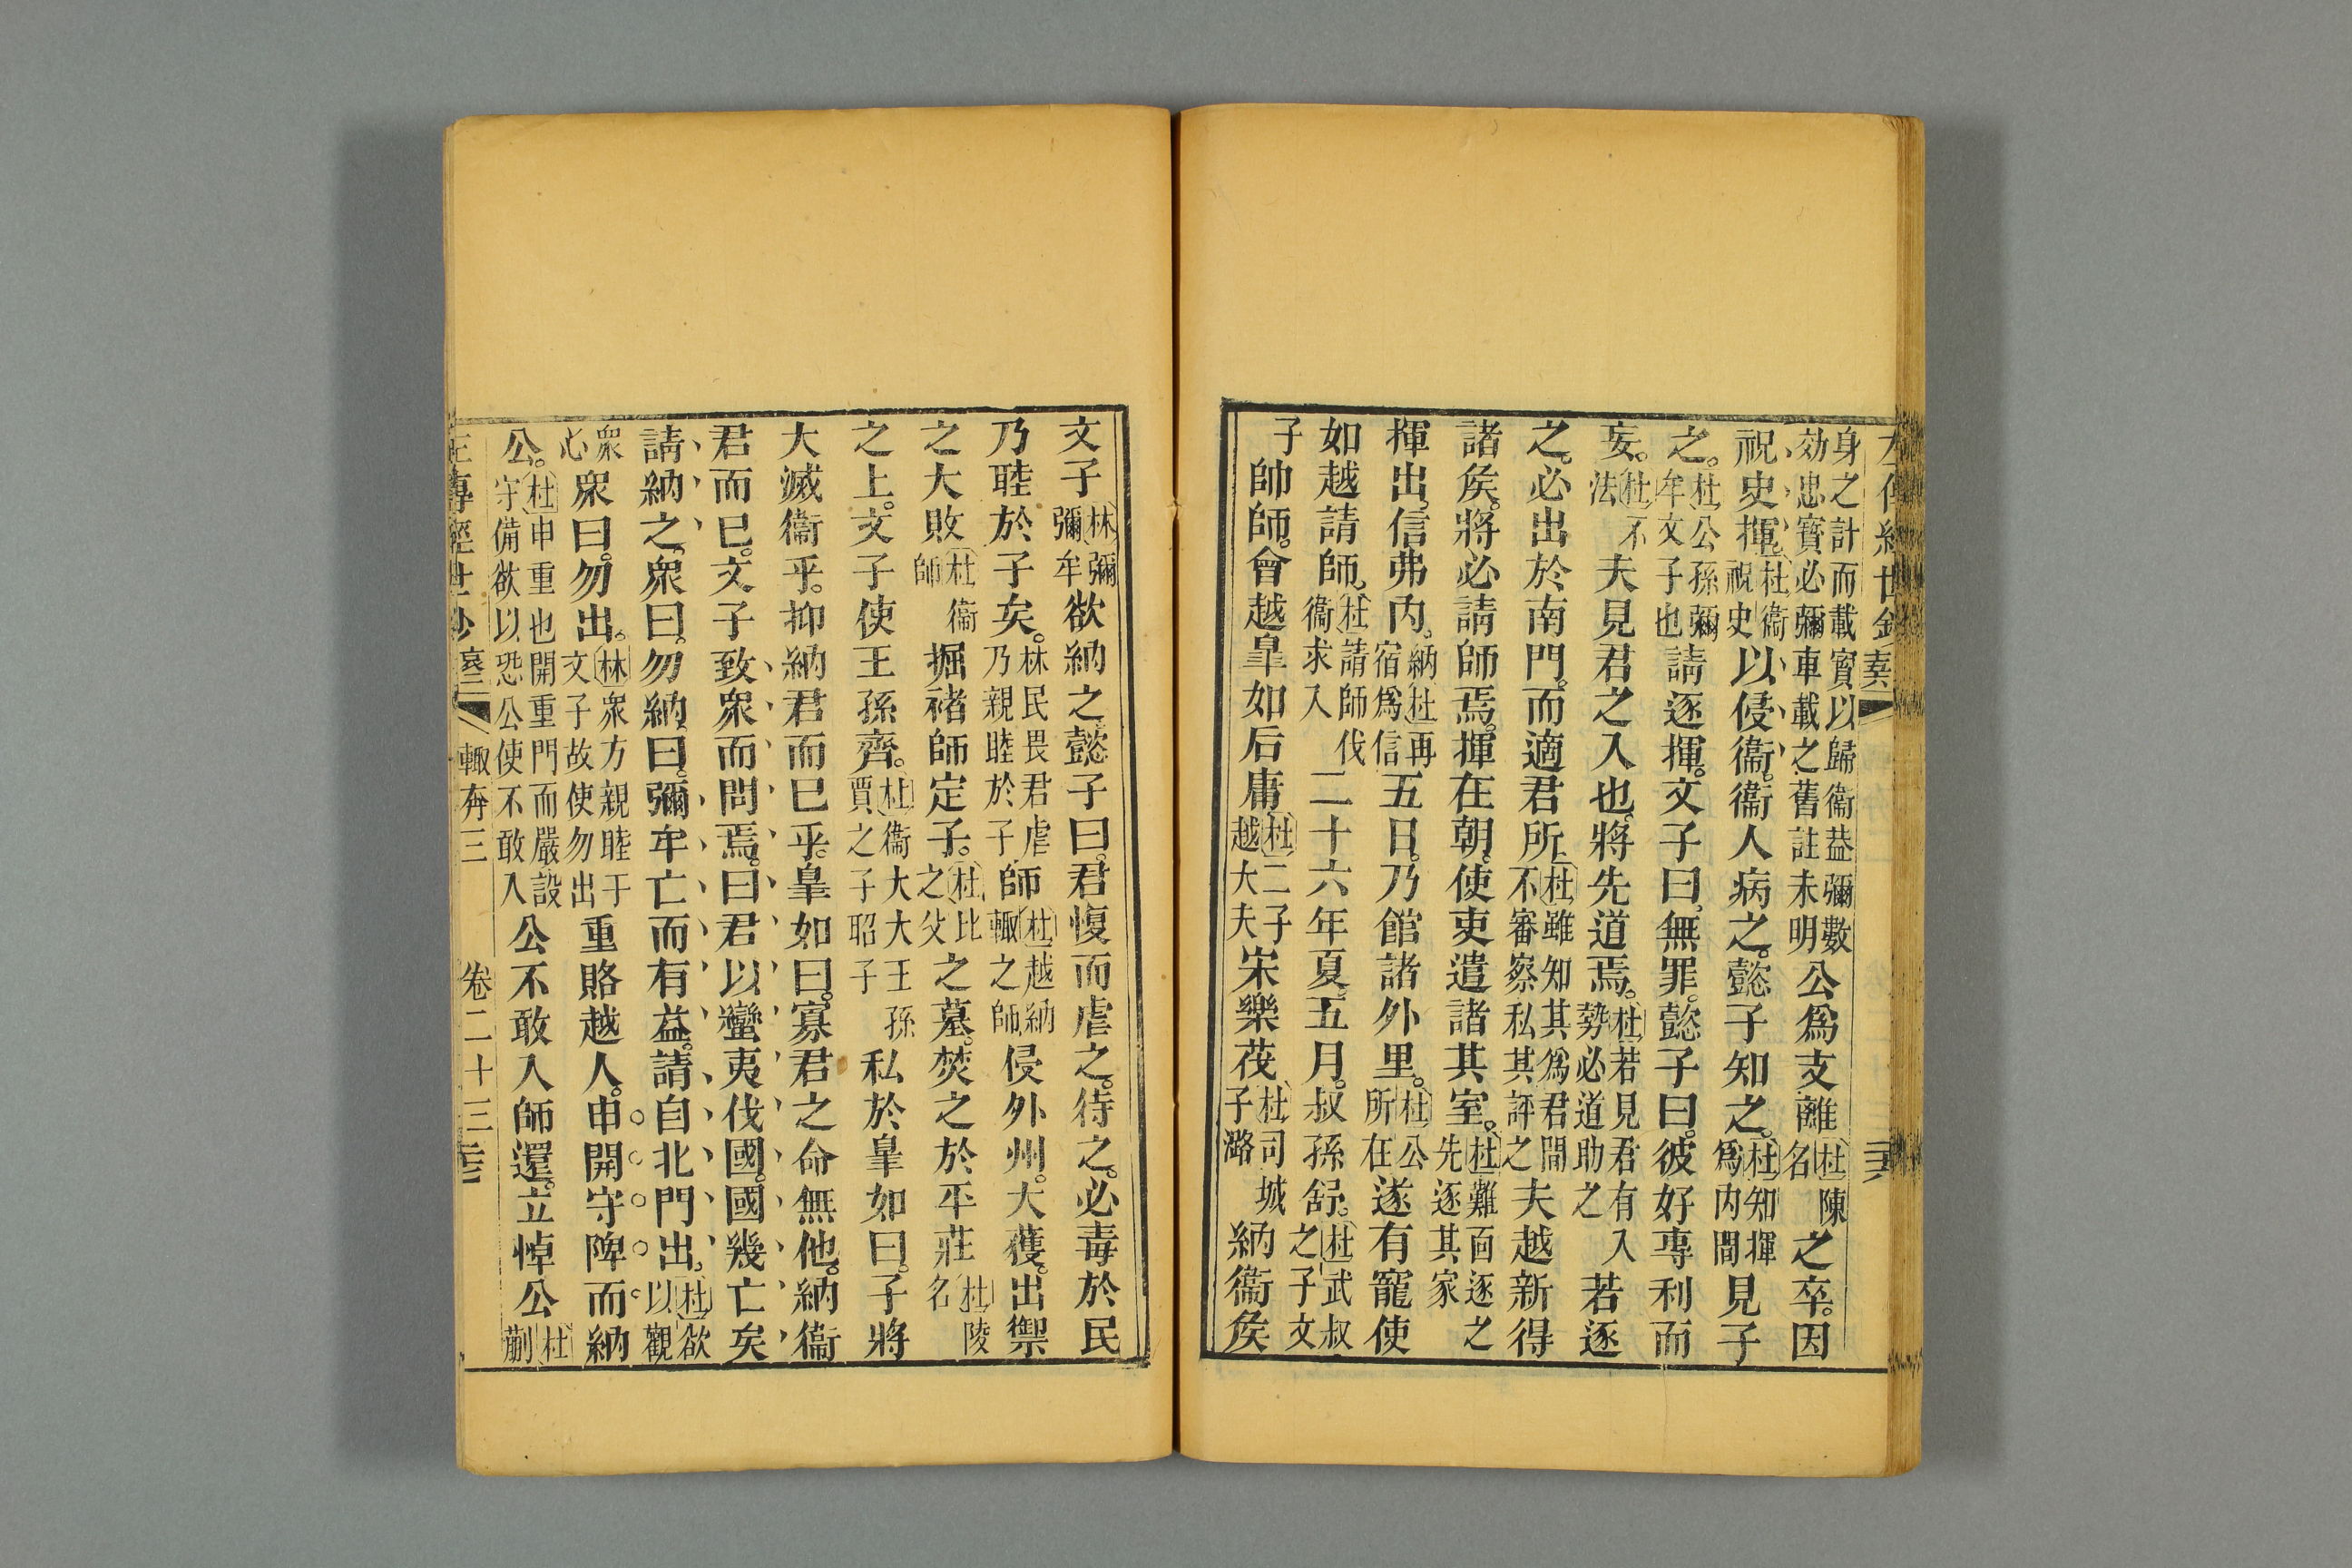 身之計而載寳以歸衞葢彌數效忠寳必彌車載之舊註未明公爲支離杜陳名之卒因
祝史揮杜衞祝史以侵衞衞人病之懿子知之杜知揮爲内間見子
之杜公孫彌牟文子也請逐揮文子曰無罪懿子曰彼好專利而
妄杜不法夫見君之入也將先道焉杜若見君有入勢必道助之若逐
之必出於南門而適君所杜雖知其爲君間不審察私其評之夫越新得
諸矦將必請師焉揮在朝使吏遣諸其室杜難面逐之先逐其家
揮出信弗内納杜再宿爲信五日乃館諸外里杜公所在遂有寵使
如越請師杜請師伐衞求入二十六年夏五月叔孫舒杜武叔之子文
子帥師會越臯如后庸杜二子越大夫宋樂茷杜司城子潞納衞矦
文子林彌彌牟欲納之懿子曰君愎而虐之待之必毒於民
乃睦於子矣林民畏君虐乃親睦於子師杜越納輒之師侵外州大獲出禦
之大敗杜衞師掘褚師定子杜比之父之墓焚之於平莊杜陵名
之上文子使王孫齊杜衞大大王孫賈之子昭子私於臯如曰子將
大滅衞乎抑納君而已乎臯如曰寡君之命無他納衞
君而已文子致衆而問焉曰君以蠻夷伐國國幾亡矣
請納之衆曰勿納曰彌牟亡而有益請自北門出杜欲以觀
衆心衆曰勿出林衆方親睦于文子故使勿出重賂越人申開守陴而納
公杜申重也開重門而嚴設守備欲以恐公使不敢入公不敢入師還立悼公杜蒯
輒奔三 卷二十三